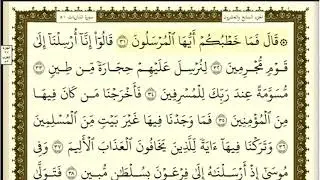 الجزء السابع والعشرون
سورة الذاريات ٥١
۞ قَالَ فَمَا خَطْبُكُمْ أَيُّهَا الْمُرْسَلُونَ ٣١ قَالُوٓا۟ إِنَّآ أُرْسِلْنَآ إِلَىٰ
قَوْمٍ مُّجْرِمِينَ ٣٢ لِنُرْسِلَ عَلَيْهِمْ حِجَارَةً مِّن طِينٍ ٣٣
مُّسَوَّمَةً عِندَ رَبِّكَ لِلْمُسْرِفِينَ ٣٤ فَأَخْرَجْنَا مَن كَانَ فِيهَا
مِنَ الْمُؤْمِنِينَ ٣٥ فَمَا وَجَدْنَا فِيهَا غَيْرَ بَيْتٍ مِّنَ الْمُسْلِمِينَ
٣٦ وَتَرَكْنَا فِيهَآ ءَايَةً لِّلَّذِينَ يَخَافُونَ الْعَذَابَ الْأَلِيمَ ٣٧ وَفِى
مُوسَىٰٓ إِذْ أَرْسَلْنَٰهُ إِلَىٰ فِرْعَوْنَ بِسُلْطَٰنٍ مُّبِينٍ ٣٨ فَتَوَلَّىٰ